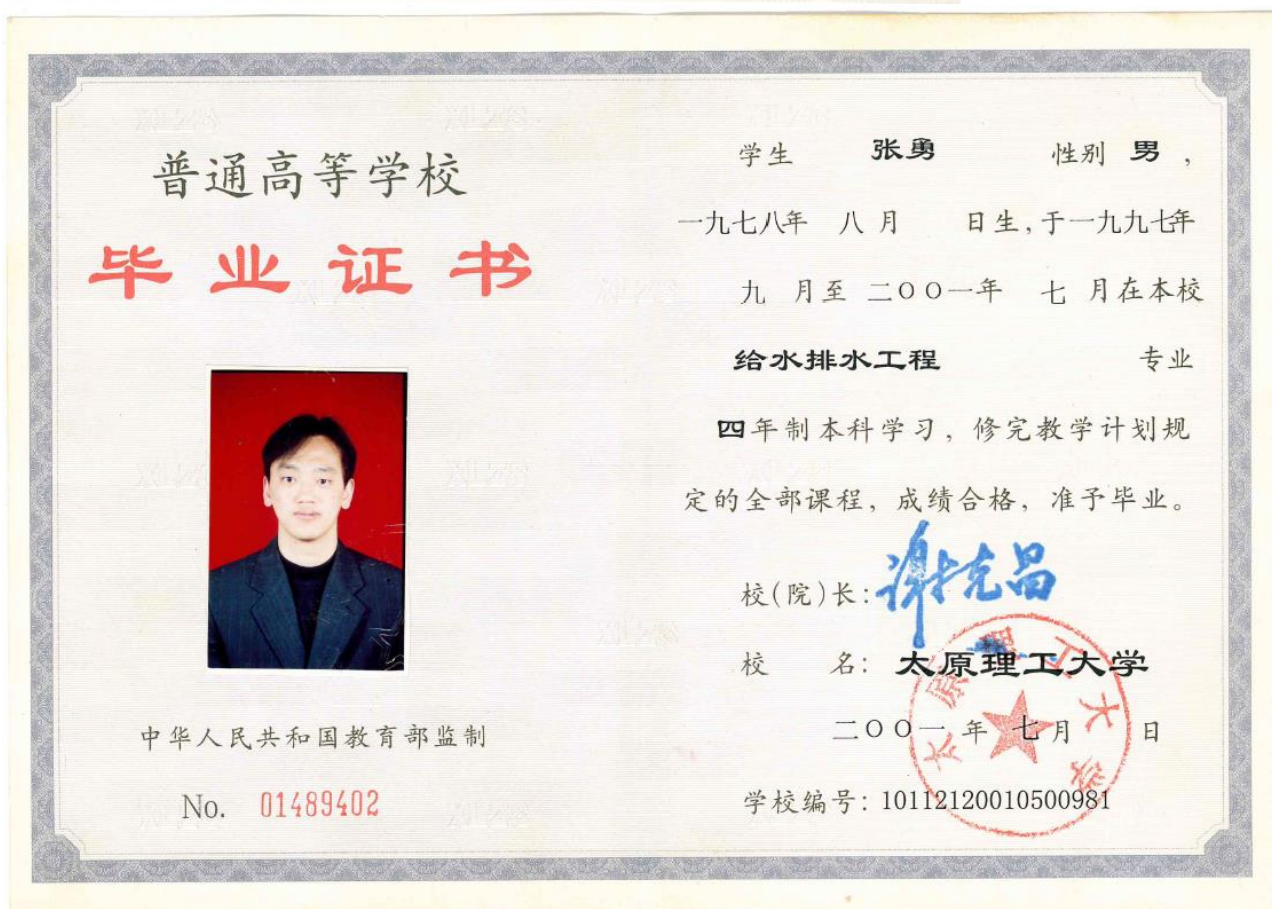 普通高等学校
毕业证书
中华人民共和国教育部监制
No. 01489402
学生 张勇 性别 男,
一九七八年 八月 日生,于一九九七年
九 月至 二〇〇一年 七 月在本校
给水排水工程 专业
四年制本科学习,修完教学计划规
定的全部课程,成绩合格,准予毕业。
校(院)长:谢克昌
校 名:太原理工大学
二〇〇一年 七月 日
学校编号:10112120010500981
太原理工大学